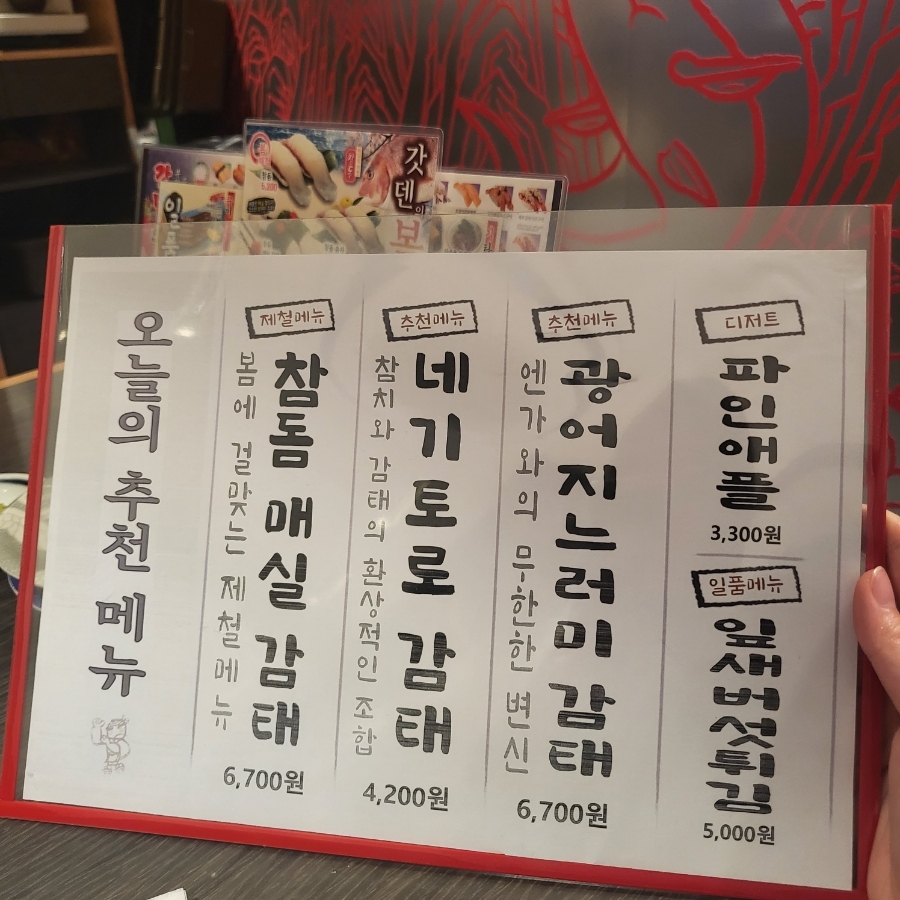 갓
덴의
보
오늘의 추천 메뉴
제철메뉴
참돔 매실 감태
봄에 걸맞는 제철메뉴
6,700원
추천메뉴
네기토로 감태
참치와 감태의 환상적인 조합
4,200원
추천메뉴
광어지느러미 감태
엔가와의 무한한 변신
6,700원
디저트
파인애플
3,300원
일품메뉴
잎새버섯튀김
5,000원